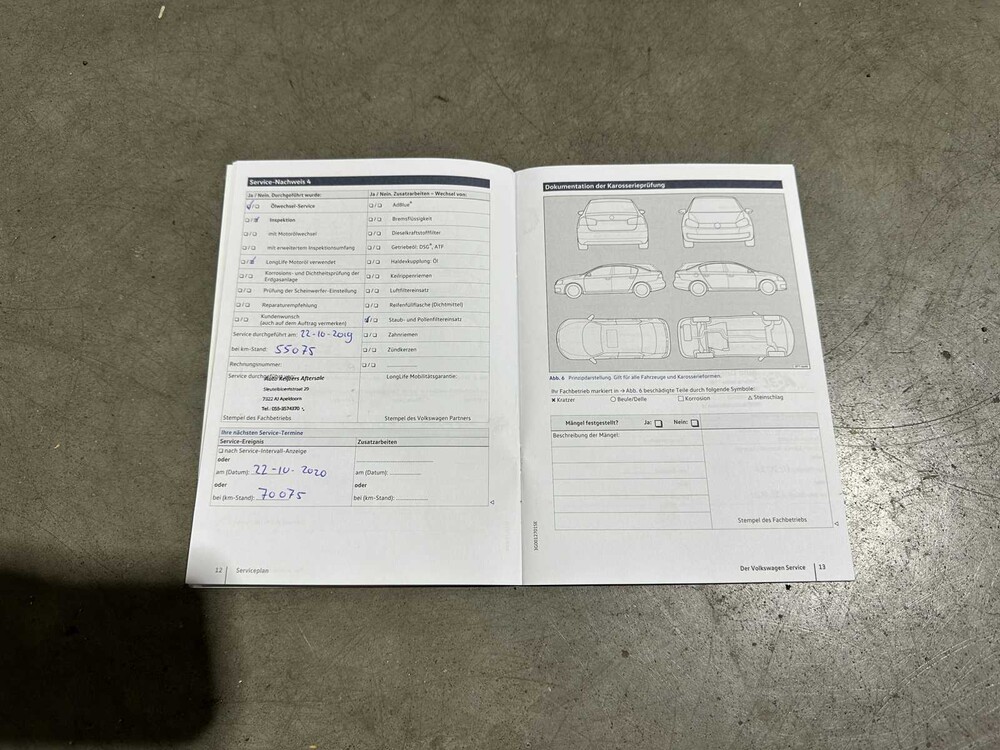 Service-Nachweis 4
Ja / Nein, Durchgeführt wurde:
Ölwechsel-Service
Inspektion
mit Motorölwechsel
mit erweitertem Inspektionsumfang
LongLife Motoröl verwendet
Korrosions- und Dichtheitsprüfung der
Erdgasanlage
Prüfung der Scheinwerfer-Einstellung
Reparaturempfehlung
Kundenwunsch
(auch auf dem Auftrag vermerken)
Service durchgeführt am: 22-10-2019
bei km-Stand: 55075
Rechnungsnummer:
Service durchgeführt
Auto Keijzers Aftersale
7322 AJ Apeldoorn
Stempel des Fachbetriebs
Ja / Nein, Zusatzarbeiten – Wechsel von:
AdBlue®
Bremsflüssigkeit
Dieselkraftstofffilter
Getriebeöl: DSG®, ATF
Haldexkupplung: Öl
Keilrippenriemen
Luftfiltereinsatz
Reifenfüllflasche (Dichtmittel)
Staub- und Pollenfiltereinsatz
Zahnriemen
Zündkerzen
LongLife Mobilitätsgarantie:
Stempel des Volkswagen Partners
Ihre nächsten Service-Termine
Service-Ereignis
nach Service-Intervall-Anzeige
oder
am (Datum): 22-10-2020
oder
bei (km-Stand): 70075
Zusatzarbeiten
am (Datum):
oder
bei (km-Stand):
12 Serviceplan
Dokumentation der Karosserieprüfung
Abb. 6 Prinzipdarstellung. Gilt für alle Fahrzeuge und Karosserieformen.
Ihr Fachbetrieb markiert in → Abb. 6 beschädigte Teile durch folgende Symbole:
Kratzer
Beule/Delle
Korrosion
Steinschlag
Mängel festgestellt? Ja: Nein:
Beschreibung der Mängel:
Stempel des Fachbetriebs
Der Volkswagen Service 13